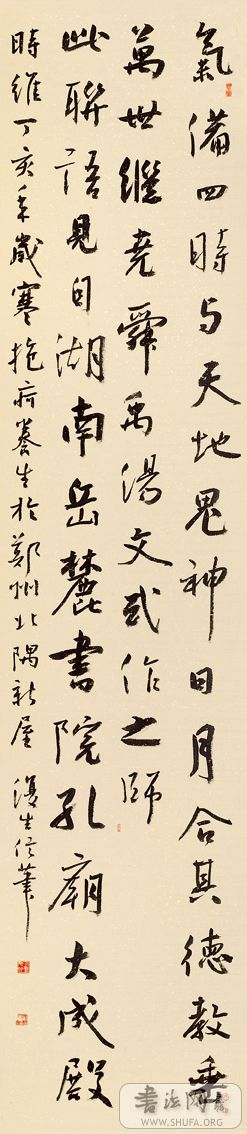 氣備四時与天地鬼神日月合其德教垂
萬世继尧舜禹湯文武作之師
此聯語見自湖南岳麓書院孔廟大成殿
時維丁亥年歲寒抱疴養生於鄭州北隅新屋 復生信筆
WWW.SHUFA.ORG